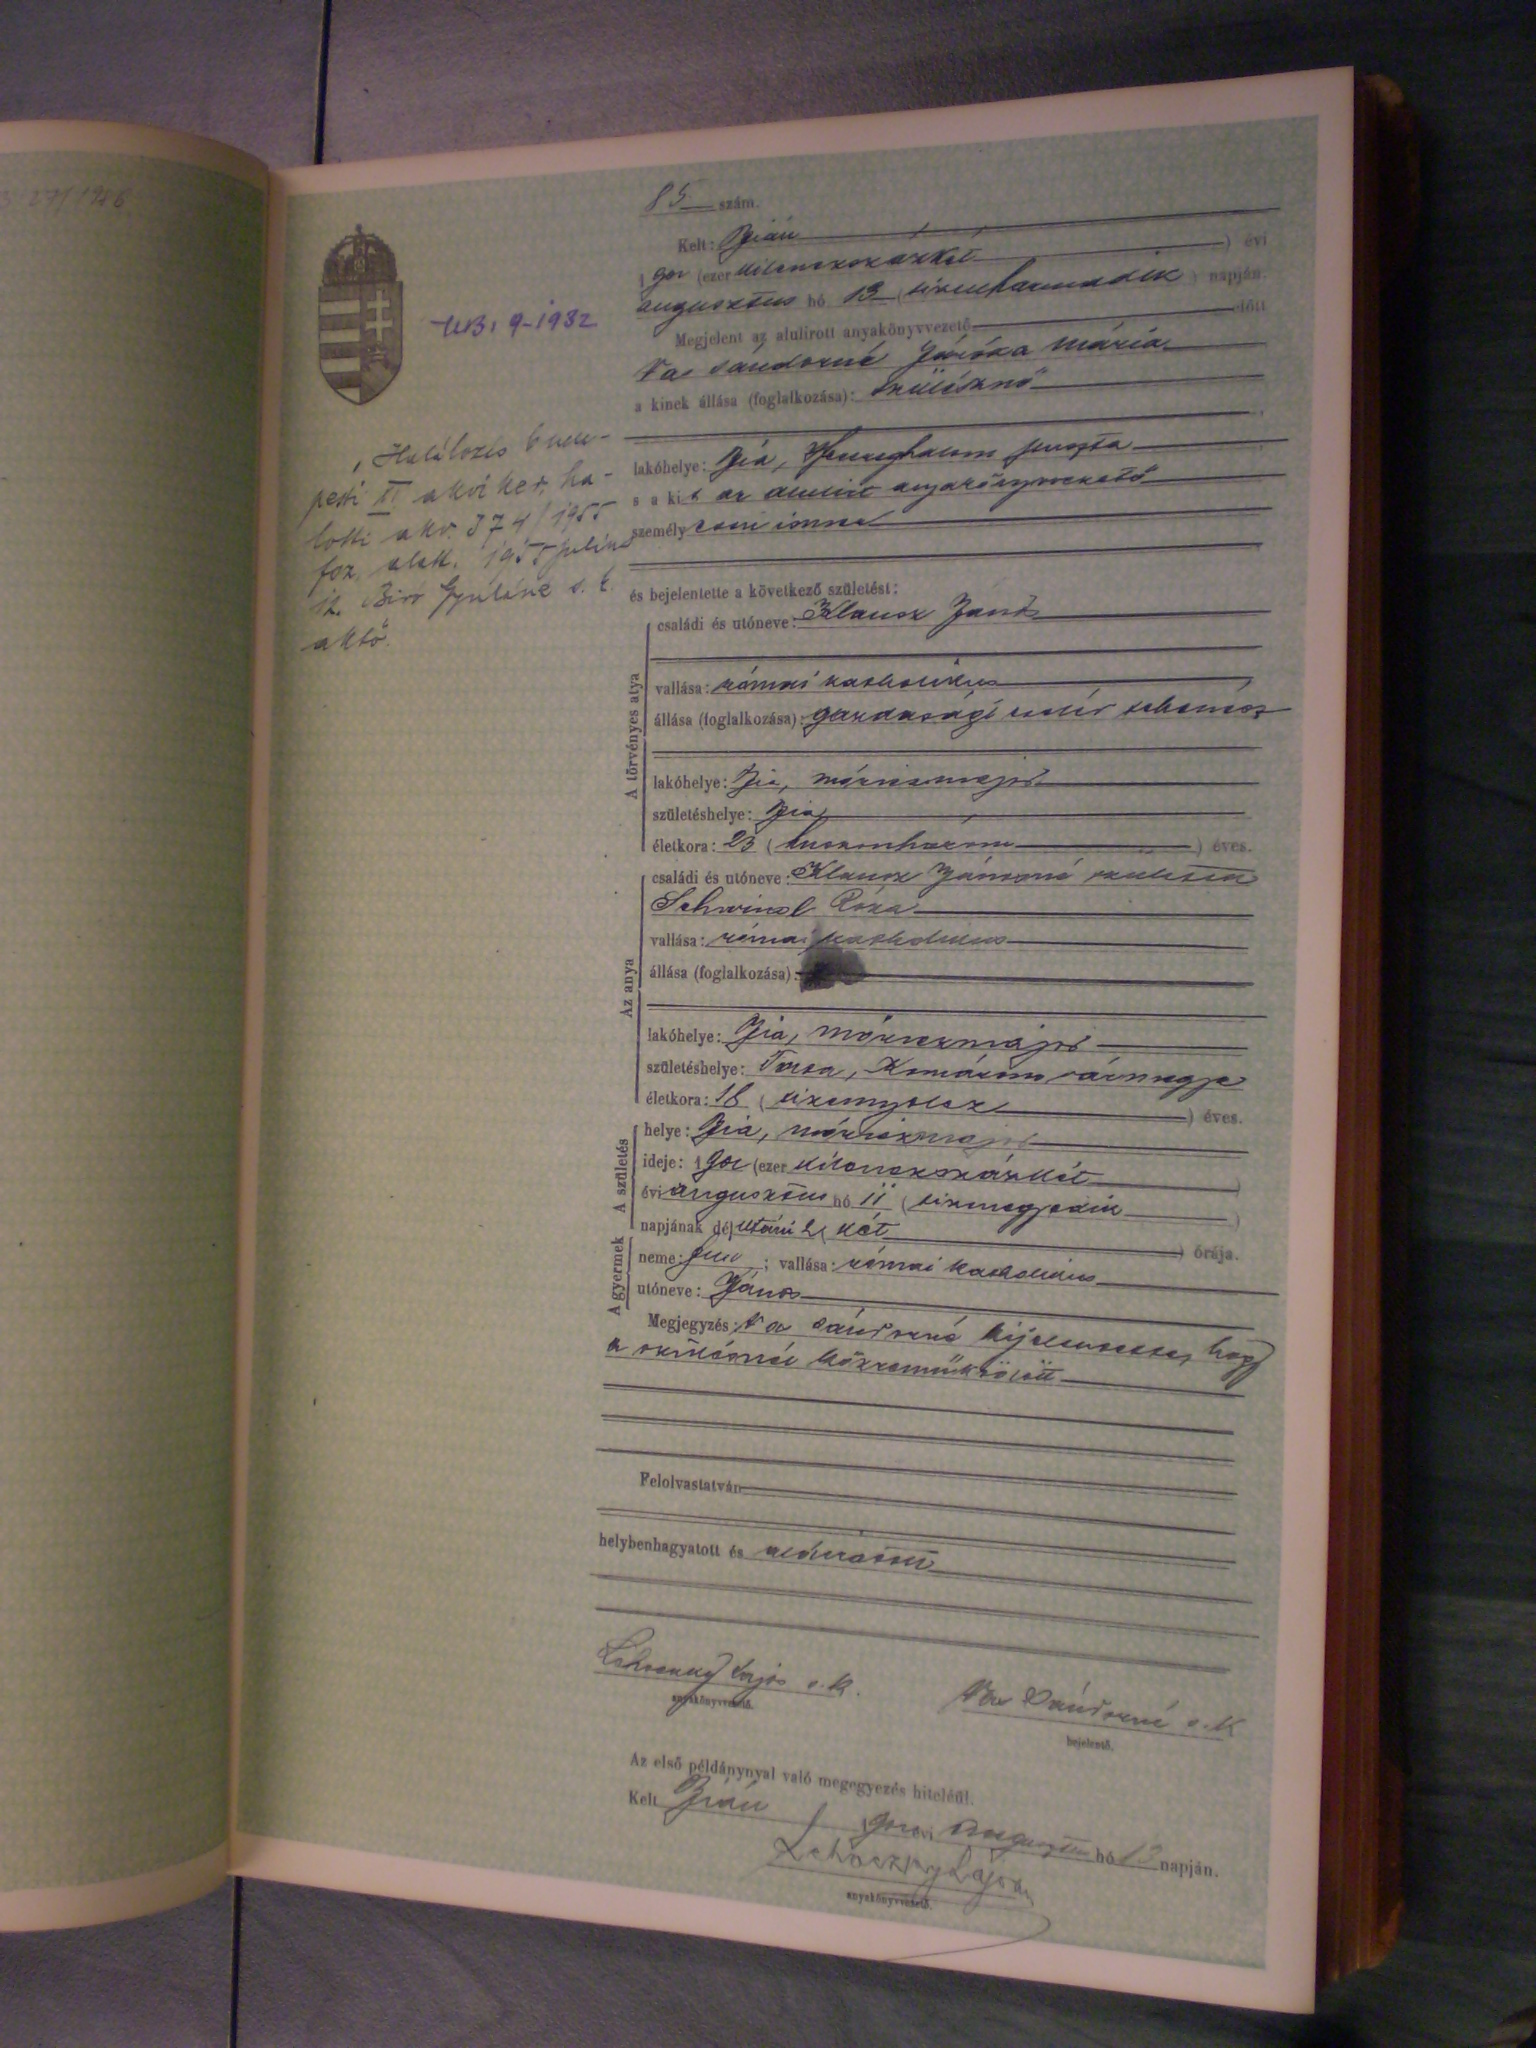 85 szám.
Kelt: Bián
1902 (ezer kilencszázkét ) évi
augusztus hó 13 (tizenharmadik ) napján.
Megjelent az alulirott anyakönyvvezető előtt
Vas Sándorné Mária
a kinek állása (foglalkozása): szülésznő
lakóhelye: Bia, puszta
s a kit az alulirt anyakönyvvezető
személyesen ismer
és bejelentette a következő születést:
A törvényes atya
családi és utóneve: Klausz János
vallása: római katholikus
állása (foglalkozása): gazdasági
lakóhelye: Bia,
születéshelye: Bia
életkora: 23 (huszonhárom ) éves.
Az anya
családi és utóneve: Klausz Jánosné született
Schwindl Róza
vallása: római katholikus
állása (foglalkozása):
lakóhelye: Bia,
születéshelye: Komárom vármegye
életkora: 18 (tizennyolcz ) éves.
A születés
helye: Bia,
ideje: 1902 (ezer kilenczszázkét )
évi augusztus hó 11 (tizenegyedik )
napjának délutáni 2 ( két ) órája.
A gyermek
neme: fiu ; vallása: római katholikus
utóneve: János
Megjegyzés: Vas Sándorné kijelentette, hogy
a szülésnél közreműködött
Felolvastatván
helybenhagyatott és aláiratott
Lehoczky Lajos s.k.
anyakönyvvezető.
Vas Sándorné s.k.
bejelentő.
Az első példánynyal való megegyezés hiteléül.
Kelt Bián 1902 évi augusztus hó 13 napján.
Lehoczky Lajos
anyakönyvvezető.
9-1932
Halálozás buda-
pesti II. akv. ker. ha-
lotti akv. 374/1955
foz. alatt. 1955 július
12. Biró Gyuláné s. k.